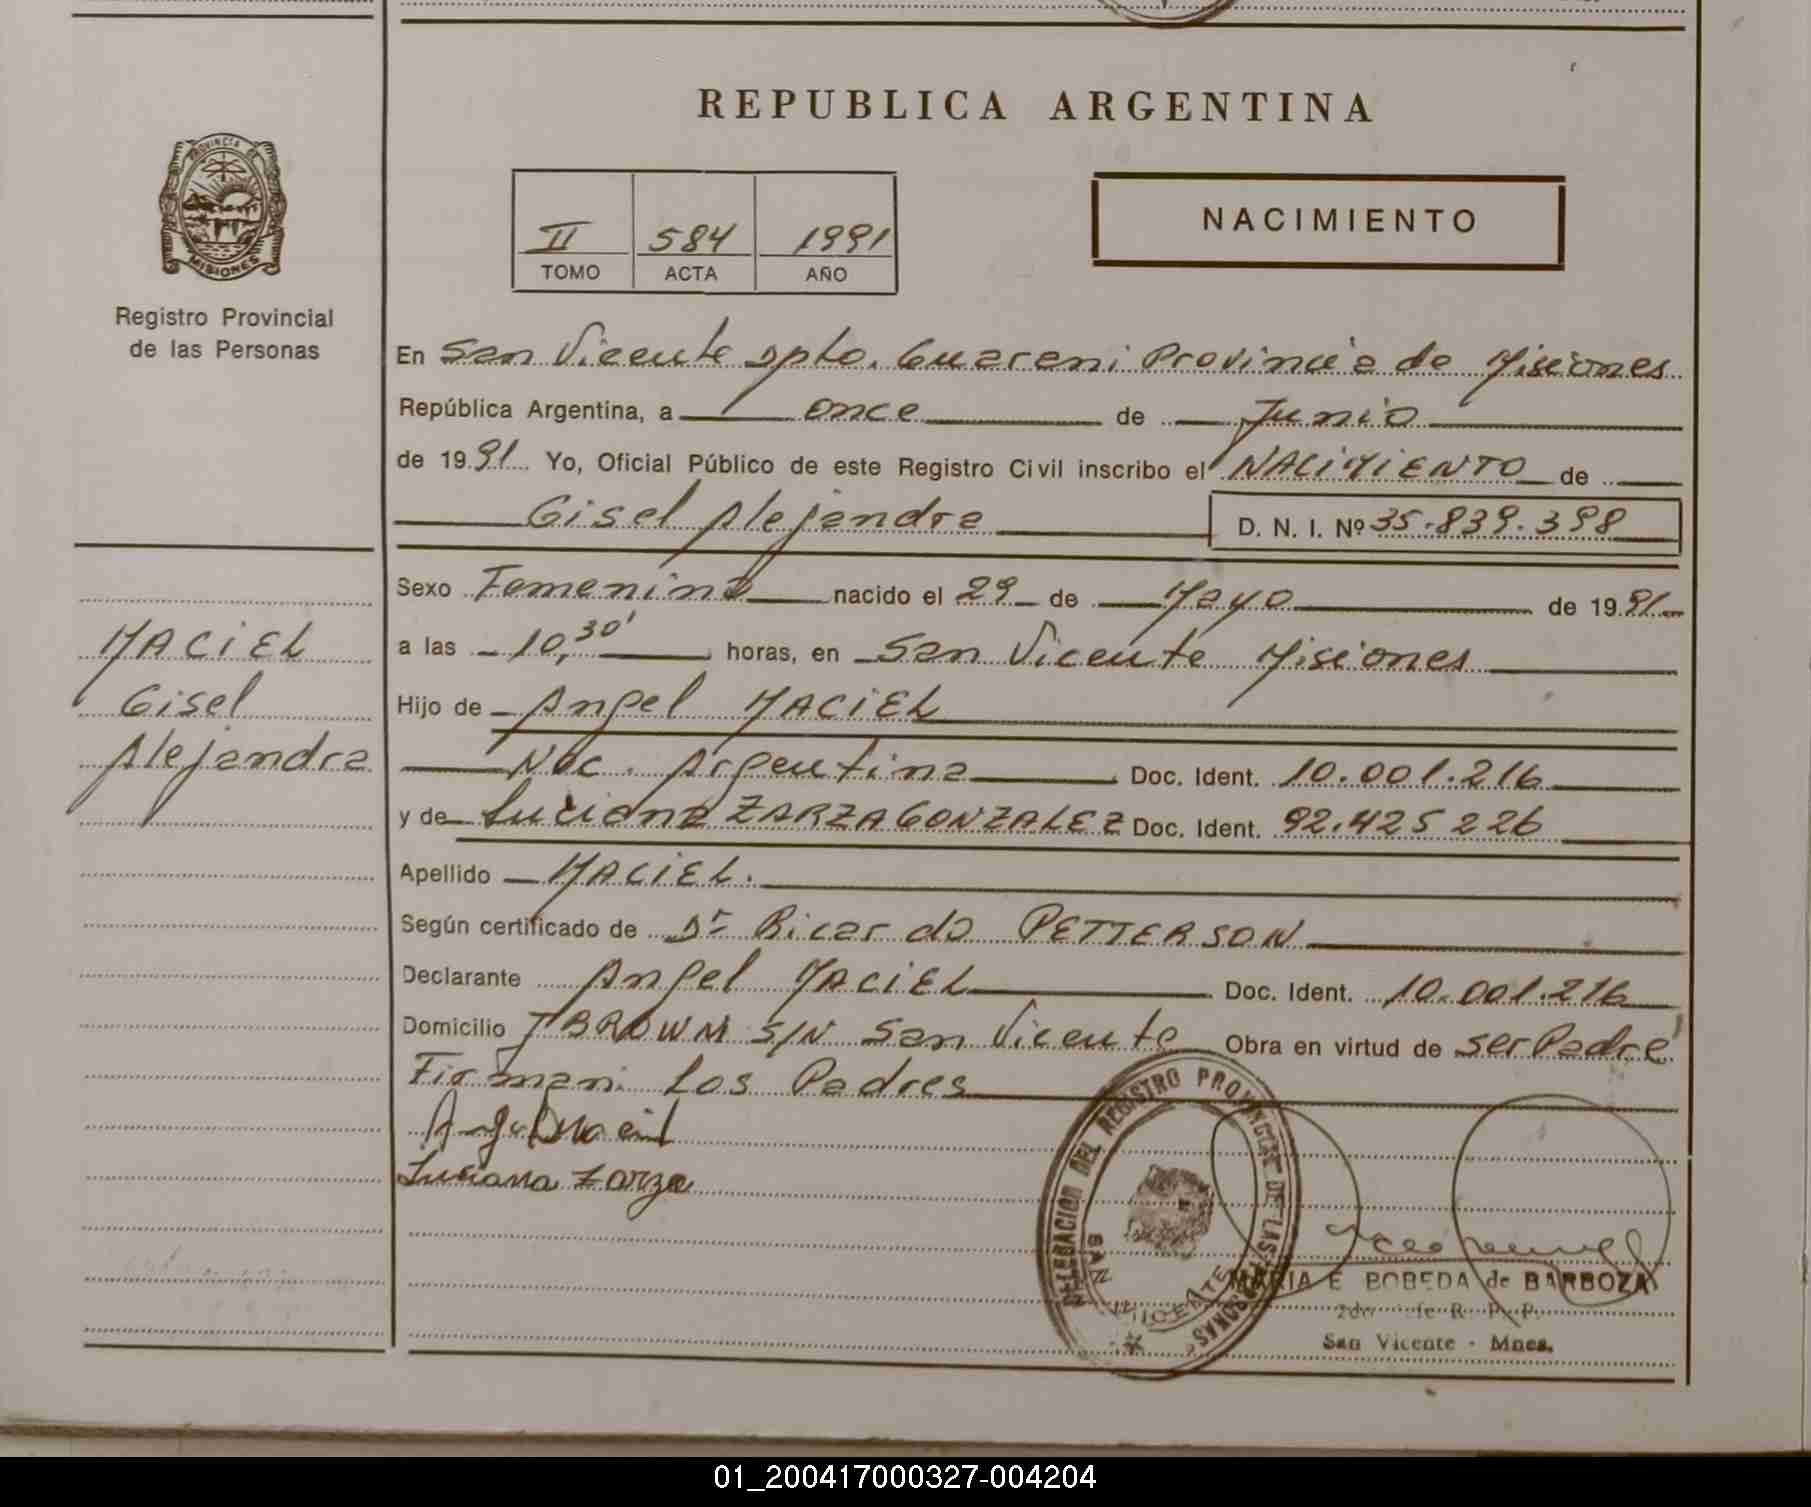 REPUBLICA ARGENTINA
PROVINCIA DE
MISIONES
Registro Provincial
de las Personas
II 584 1991
TOMO ACTA AÑO
NACIMIENTO
En San Vicente Dpto. Guarani Provincia de Misiones
República Argentina, a once de Junio
de 1991 Yo, Oficial Público de este Registro Civil inscribo el NACIMIENTO de
Gisel Alejandra D. N. I. Nº 35.839.398
Sexo Femenino nacido el 29 de Mayo de 1991
a las 10,30' horas, en San Vicente Misiones
Hijo de Angel MACIEL
Nac. Argentina Doc. Ident. 10.001.216
y de Luciana ZARZA GONZALEZ Doc. Ident. 92.425 226
Apellido MACIEL.
Según certificado de Dr Ricardo PETTERSON
Declarante Angel MACIEL Doc. Ident. 10.001.216
Domicilio BROWM S/N San Vicente Obra en virtud de ser Padre
Firman: Los Padres
Luciana Zarza
MACIEL
Gisel
Alejandra
DELEGACION DEL REGISTRO PROVINCIAL DE LAS PERSONAS
SAN VICENTE
MARIA E BOBEDA de BARBOZA
R. P. P.
San Vicente - Mnes.
01_200417000327-004204